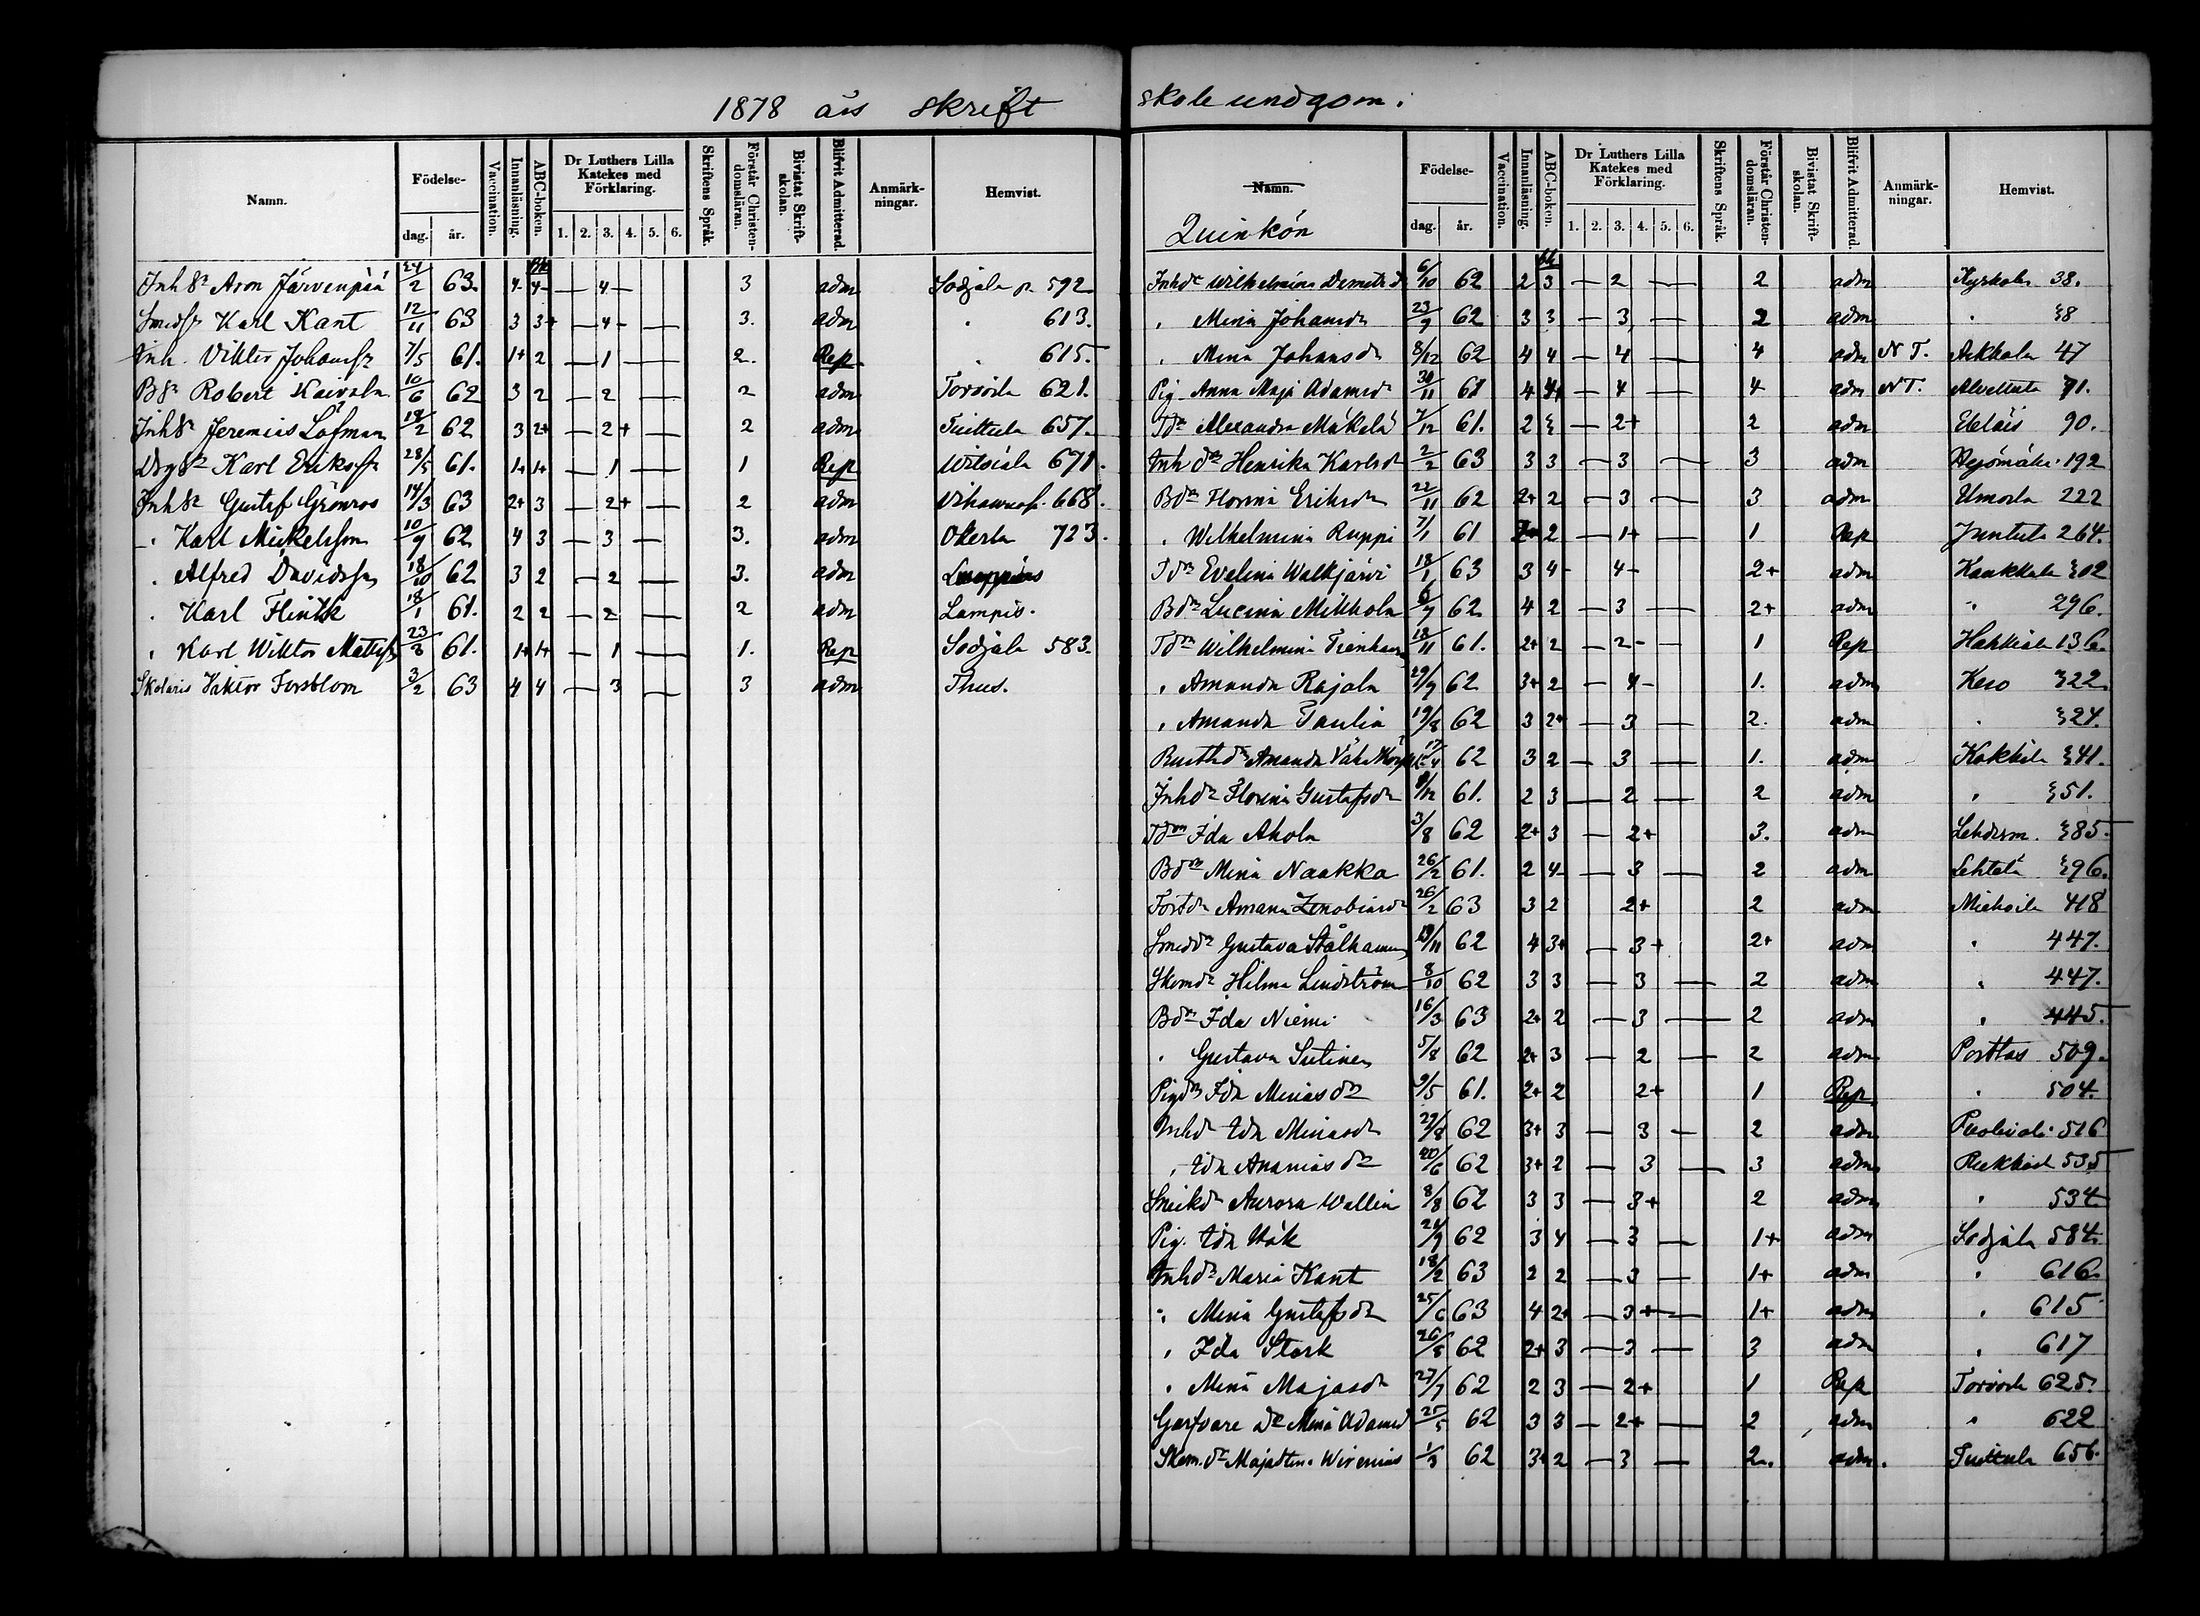 1878 års skrift skole undgom.
Namn. Födelse- dag. år. Vaccination. Innanläsning. ABC-boken. Dr Luthers Lilla Katekes med Förklaring. 1. 2. 3. 4. 5. 6. Skriftens Språk. Förstår Christendomsläran. Bivistat Skriftskolan. Blifvit Admitterad. Anmärkningar. Hemvist.
Inhsn Aron Järvenpää 24/2 63. 4- 4- — 4 — 3 adm Sodjala p. 592
Smedsn Karl Kant 12/11 63 3 3+ — 4- — 3. adm " 613.
Inh. Viktor Johansn 7/5 61. 1+ 2 — 1 — 2. Rep " 615.
Bsn Robert Kaivola 10/6 62 3 2 — 2 — 2 adm Torvoila 621.
Inhsn Jeremias Löfman 18/2 62 3 2+ — 2+ — 2 adm Tuittula 657.
Drgsn Karl Eriksn 28/5 61. 1+ 1+ — 1 — 1 Rep Witsiala 671.
Inhsn Gustaf Grönroos 14/3 63 2+ 3 — 2+ — 2 adm 668.
" Karl Mickelsson 10/9 62 4 3 — 3 — 3. adm Okerla 723.
" Alfred Davidsson 18/10 62 3 2 — 2 — 3. adm
" Karl Flink 18/1 61. 2 2 — 2 — 2 adm Lampis.
" Karl Wiktor Mattss 23/3 61. 1+ 1+ — 1 — 1. Rep Sodjala 583.
Skolaris Viktor Forsblom 3/2 63 4 4 — 3 — 3 adm Thus.
Namn. Födelse- dag. år. Vaccination. Innanläsning. ABC-boken. Dr Luthers Lilla Katekes med Förklaring. 1. 2. 3. 4. 5. 6. Skriftens Språk. Förstår Christendomsläran. Bivistat Skriftskolan. Blifvit Admitterad. Anmärkningar. Hemvist.
Quinkön
Inhdr Wilhelmina Demetrd 6/10 62 2 3 — 2 — 2 adm Kyrkola 38.
" Mina Johansdr 23/9 62 3 3 — 3 — 2 adm " 38
" Mina Johansdr 8/12 62 4 4 — 4 — 4 adm N T. Arkkola 47
Pig. Anna Maja Adamsdr 30/11 61 4 4+ — 4 — 4 adm N T. Alvettula 71.
Tdr Alexandra Mäkelä 7/12 61. 2 3 — 2+ 2 adm Eteläis 90.
Inhdr Henrika Karlsdr 2/2 63 3 3 — 3 — 3 adm 192
Bdr Florina Eriksdr 22/11 62 2+ 2 — 3 — 3 adm Umoila 222
" Wilhelmina Ruppi 7/1 61 2 — 1+ — 1 Rep Juntula 264.
Tdr Evelina Walkjärvi 18/1 63 3 4- 4- — 2+ adm Kaukkala 302
Bdr Lucina Mikkola 6/7 62 4 2 — 3 — 2+ adm " 296.
Tdr Wilhelmina Tienhaara 18/11 61. 2+ 2 — 2- — 1 Rep Hahkiala 136.
" Amanda Rajala 29/9 62 3+ 2 — 4- 1. adm Keso 322
" Amanda Paulia 19/8 62 3 2+ — 3 — 2. adm " 324.
Rusthdr Amanda 17/4 62 3 2 — 3 — 1. adm Kokkila 341.
Inhdr Florina Gustafsdr 9/12 61. 2 3 — 2 — 2 adm " 351.
Tdr Ida Ahola 3/8 62 2+ 3 — 2+ 3. adm 385
Bdr Mina Naakka 26/2 61. 2 4 — 3 — 2 adm 396.
Amanda Zenobiasdr 26/2 63 3 2 2+ 2 adm Miehoila 418
Smeddr Gustava Stålhamm 19/11 62 4 3+ — 3+ 2+ adm " 447.
Skomdr Hilma Lindström 8/10 62 3 3 — 3 — 2 adm " 447.
Bdr Ida Niemi 16/3 63 2+ 2 — 3 — 2 adm " 445.
" Gustava Sutinen 5/8 62 2+ 3 — 2 — 2 adm Porttas 509.
Pigdr Ida Miniasdr 9/5 61. 2+ 2 2+ 1 Rep " 504.
Inhdr Ida Miinasdr 27/8 62 3+ 3 — 3 — 2 adm 516
" Ida Ananiasdr 20/6 62 3+ 2 — 3 — 3 adm 535
Snickdr Aurora Wallin 8/8 62 3 3 — 3+ 2 adm " 534
Pig. Ida Hök 24/9 62 3 4 — 3 — 1+ adm Sodjala 584.
Inhdr Maria Kant 18/2 63 2 2 — 3 — 1+ adm " 616.
" Mina Gustafsdr 25/6 63 4 2+ — 3+ — 1+ adm " 615
" Ida Stark 26/8 62 2+ 3 — 3 — 3 adm " 617
" Mina Majasdr 27/7 62 2 3 — 2+ 1 Rep Torvoila 625.
Garfvare dr Mina Adamsd 25/5 62 3 3 — 2+ — 2 adm " 622
Skom.dr Majastina Wirenius 1/3 62 3+ 2 — 3 — 2. adm. Tuittula 656.